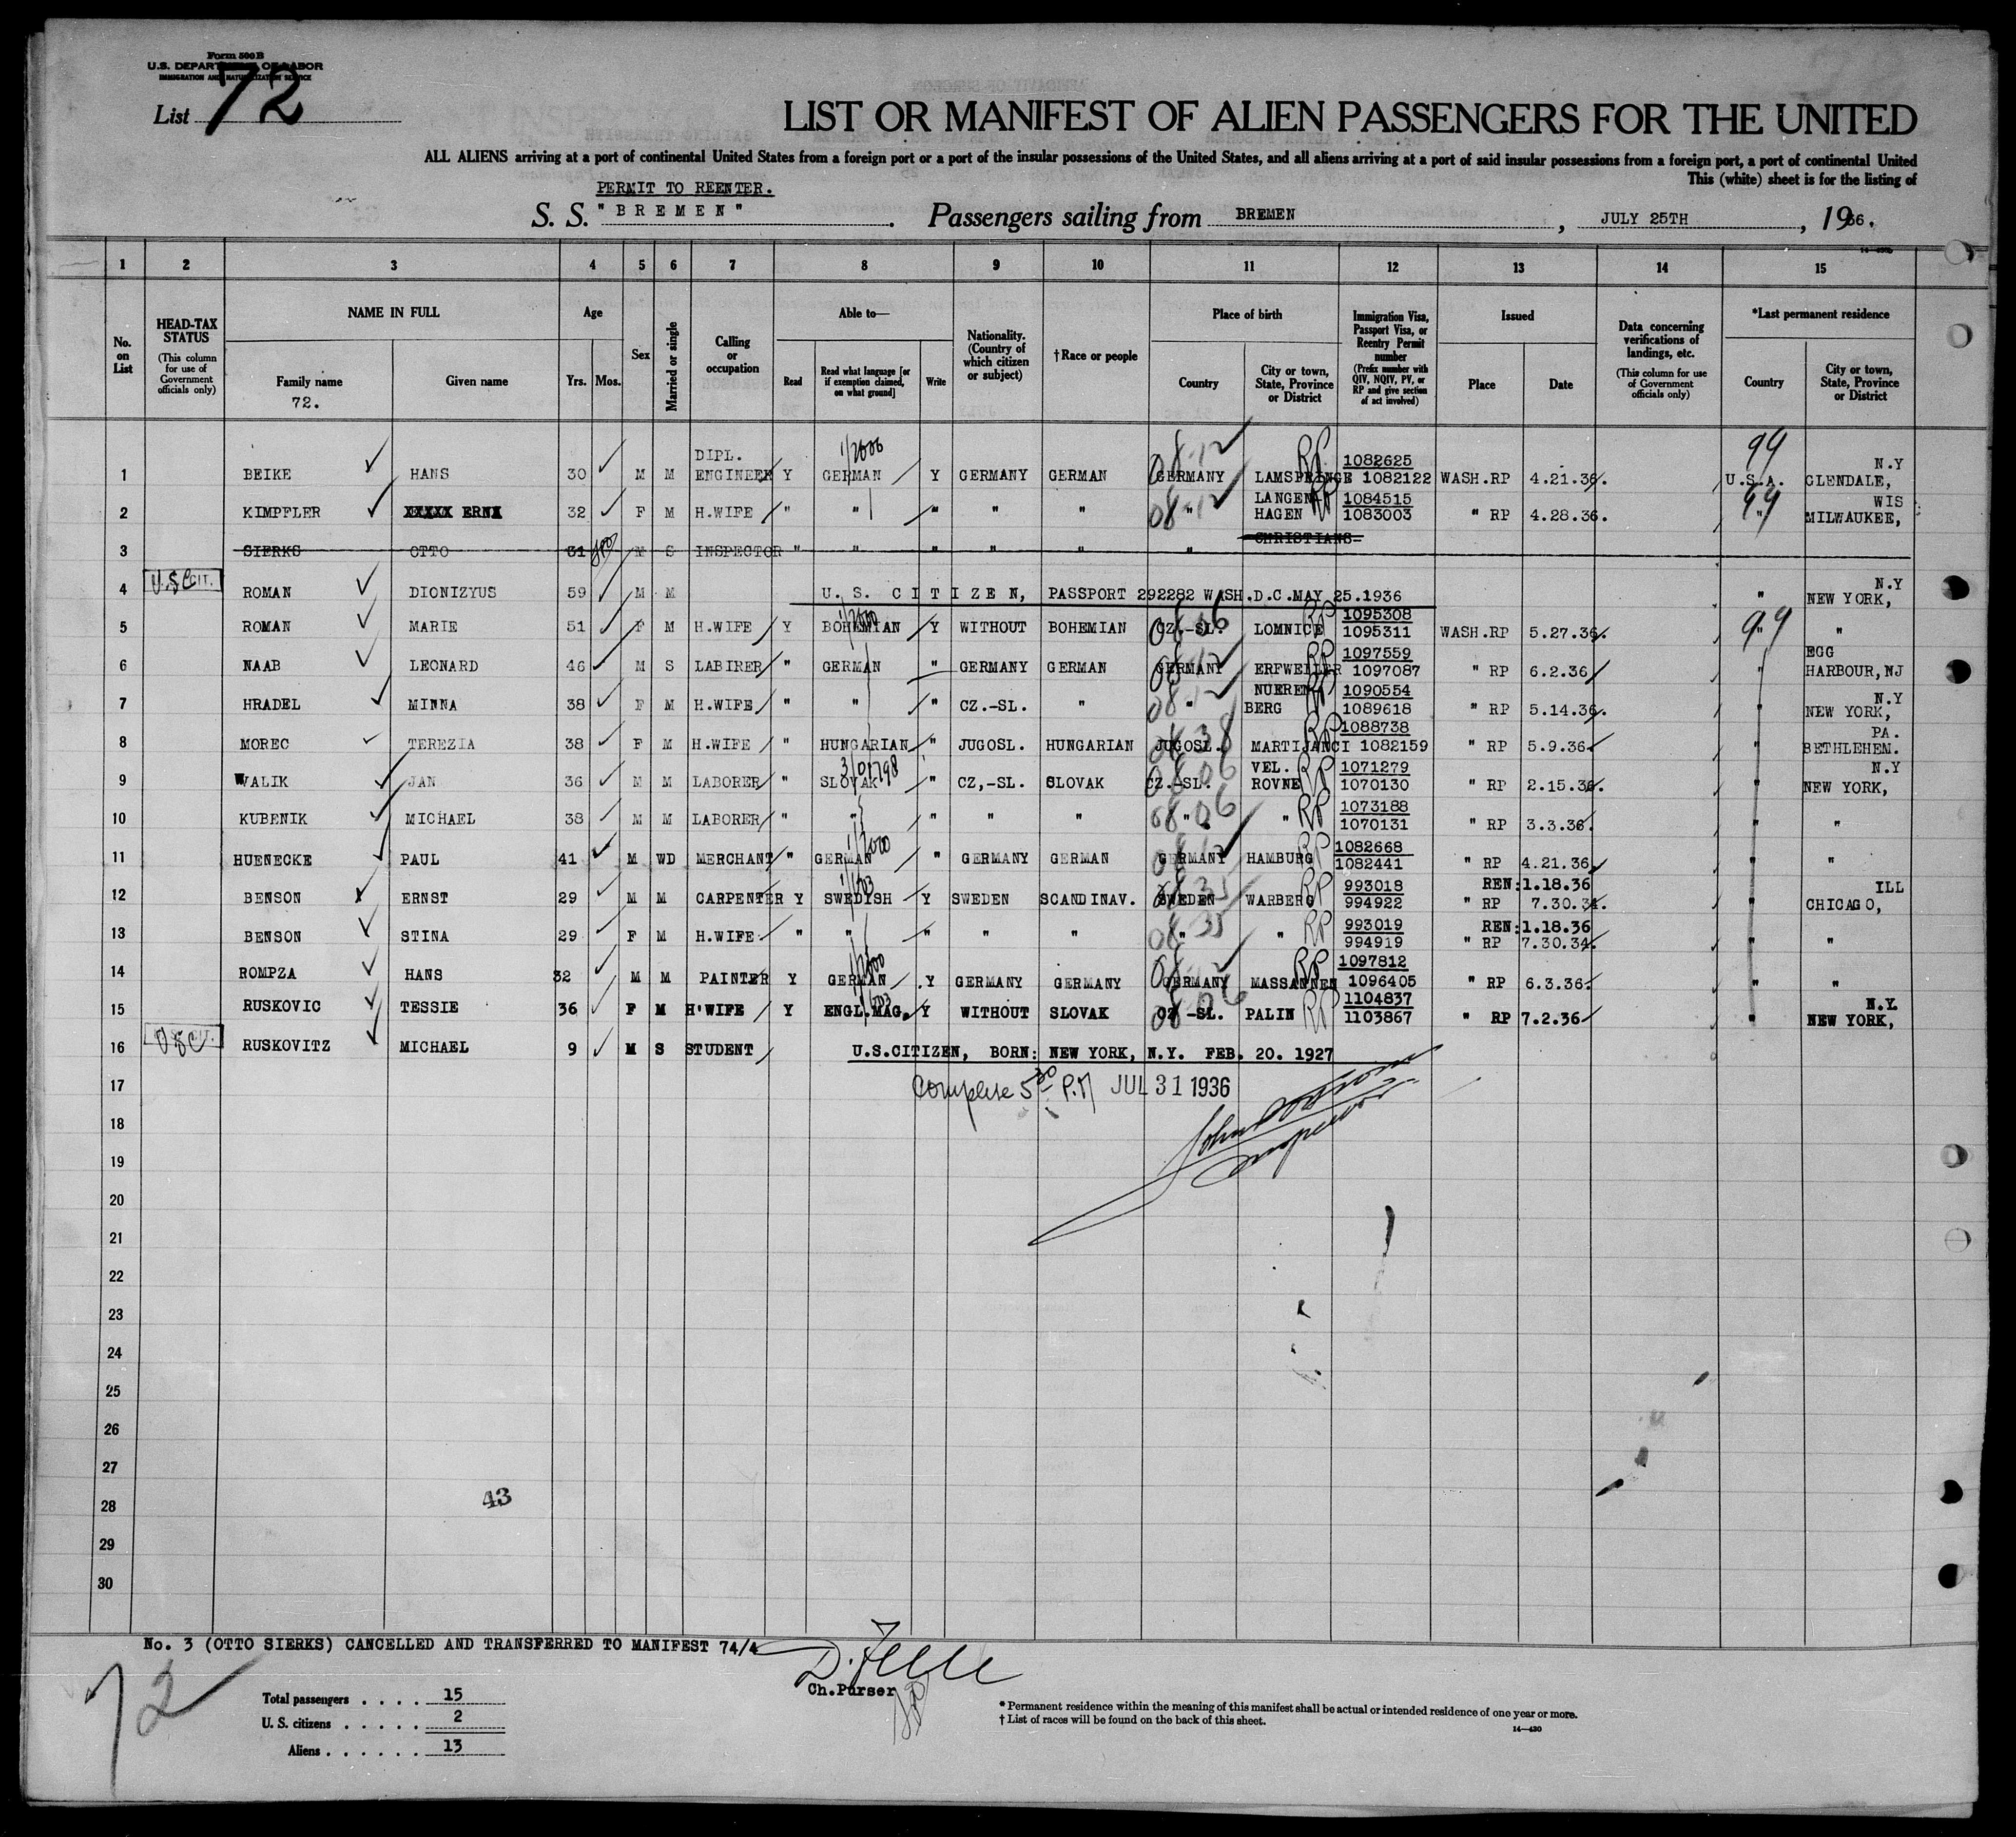 Form 500 B
U.S. DEPARTMENT OF LABOR
IMMIGRATION AND NATURALIZATION SERVICE
List 72
LIST OR MANIFEST OF ALIEN PASSENGERS FOR THE UNITED
ALL ALIENS arriving at a port of continental United States from a foreign port or a port of the insular possessions of the United States, and all aliens arriving at a port of said insular possessions from a foreign port, a port of continental United
This (white) sheet is for the listing of
PERMIT TO REENTER.
S. S. "BREMEN". Passengers sailing from BREMEN, JULY 25TH, 1936.
1 2 3 4 5 6 7 8 9 10 11 12 13 14 15
No. on List
HEAD-TAX STATUS (This column for use of Government officials only)
NAME IN FULL
Family name
72.
Given name
Age
Yrs. Mos.
Sex
Married or single
Calling or occupation
Able to—
Read
Read what language [or if exemption claimed, on what ground]
Write
Nationality. (Country of which citizen or subject)
†Race or people
Place of birth
Country
City or town, State, Province or District
Immigration Visa, Passport Visa, or Reentry Permit number (Prefix number with QIV, NQIV, PV, or RP and give section of act involved)
Issued
Place
Date
Data concerning verifications of landings, etc. (This column for use of Government officials only)
*Last permanent residence
Country
City or town, State, Province or District
1 BEIKE HANS 30 M M DIPL. ENGINEER Y GERMAN Y GERMANY GERMAN 08-12 GERMANY LAMSPRINGE RP 1082625 1082122 WASH.RP 4.21.36. 99 U.S.A. N.Y CLENDALE,
2 KIMPFLER XXXXX ERNA 32 F M H.WIFE " " " " " 08-12 " LANGEN HAGEN RP 1084515 1083003 " RP 4.28.36. 99 " WIS MILWAUKEE,
3 SIERKS OTTO 31 M S INSPECTOR " " " " " " CHRISTIANS
4 U.S. CIT. ROMAN DIONIZYUS 59 M M U. S. CITIZEN, PASSPORT 292282 WASH.D.C.MAY 25.1936 " N.Y NEW YORK,
5 ROMAN MARIE 51 F M H.WIFE Y BOHEMIAN Y WITHOUT BOHEMIAN 08-06 CZ.-SL. LOMNICE RP 1095308 1095311 WASH.RP 5.27.36. 99 " "
6 NAAB LEONARD 46 M S LABIRER " GERMAN " GERMANY GERMAN 08-12 GERMANY ERFWEILER RP 1097559 1097087 " RP 6.2.36 " EGG HARBOUR,NJ
7 HRADEL MINNA 38 F M H.WIFE " " " CZ.-SL. " 08-12 " NUEREN BERG RP 1090554 1089618 " RP 5.14.36. " N.Y NEW YORK,
8 MOREC TEREZIA 38 F M H.WIFE " HUNGARIAN " JUGOSL. HUNGARIAN 08 38 JUGOSL. MARTIJANCI RP 1088738 1082159 " RP 5.9.36 " PA. BETHLEHEM.
9 WALIK JAN 36 M M LABORER " SLOVAK " CZ,-SL. SLOVAK 08.06 CZ.-SL. VEL. ROVNE RP 1071279 1070130 " RP 2.15.36. N.Y NEW YORK,
10 KUBENIK MICHAEL 38 M M LABORER " " " " " 08.06 " " RP 1073188 1070131 " RP 3.3.36. " "
11 HUENECKE PAUL 41 M WD MERCHANT " GERMAN " GERMANY GERMAN GERMANY HAMBURG RP 1082668 1082441 " RP 4.21.36 " "
12 BENSON ERNST 29 M M CARPENTER Y SWEDISH Y SWEDEN SCANDINAV. 08 35 SWEDEN WARBERG RP 993018 994922 REN:1.18.36 " RP 7.30.34. " ILL CHICAGO,
13 BENSON STINA 29 F M H.WIFE " " " " " 08 35 " " RP 993019 994919 REN:1.18.36 " RP 7.30.34. " "
14 ROMPZA HANS 32 M M PAINTER Y GERMAN Y GERMANY GERMANY 08-12 GERMANY MASSANNEN RP 1097812 1096405 " RP 6.3.36. " "
15 RUSKOVIC TESSIE 36 F M H'WIFE Y ENGL.MAG. Y WITHOUT SLOVAK 08-06 CZ-SL. PALIN RP 1104837 1103867 " RP 7.2.36 " N.Y. NEW YORK,
16 RUSKOVITZ MICHAEL 9 M S STUDENT U.S.CITIZEN, BORN: NEW YORK, N.Y. FEB. 20. 1927
17 5 30 P.M JUL 31 1936
18
19
20
21
22
23
24
25
26
27
28 43
29
30
No. 3 (OTTO SIERKS) CANCELLED AND TRANSFERRED TO MANIFEST 74/4
Ch.Purser
72
Total passengers . . . . 15
U. S. citizens . . . . . 2
Aliens . . . . . . 13
* Permanent residence within the meaning of this manifest shall be actual or intended residence of one year or more.
† List of races will be found on the back of this sheet.
14—430